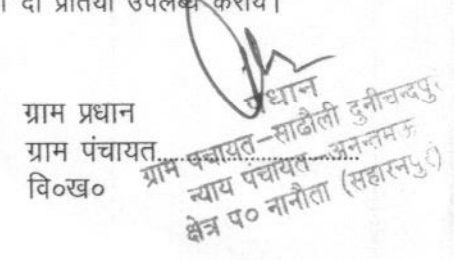 दो प्रतियाँ उपलब्ध करायें।
ग्राम प्रधान
ग्राम पंचायत....................................
वि०ख०
प्रधान
ग्राम पंचायत–साढौली दुनीचन्दपुर
न्याय पंचायत–
क्षेत्र प० नानौता (सहारनपुर)